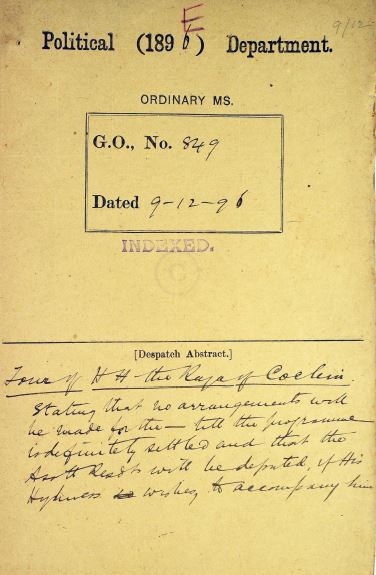 9/12
E
Political (1896) Department.
ORDINARY MS.
G.O., No. 849
Dated 9-12-96
INDEXED.
©
[Despatch Abstract.]
Tour of H H the Raja of Cochin.
Stating that no arrangements will
be made for the — till the programme
is definitely settled and that the
Asstt Resdt will be deputed, if His
Highness wishes, to accompany him